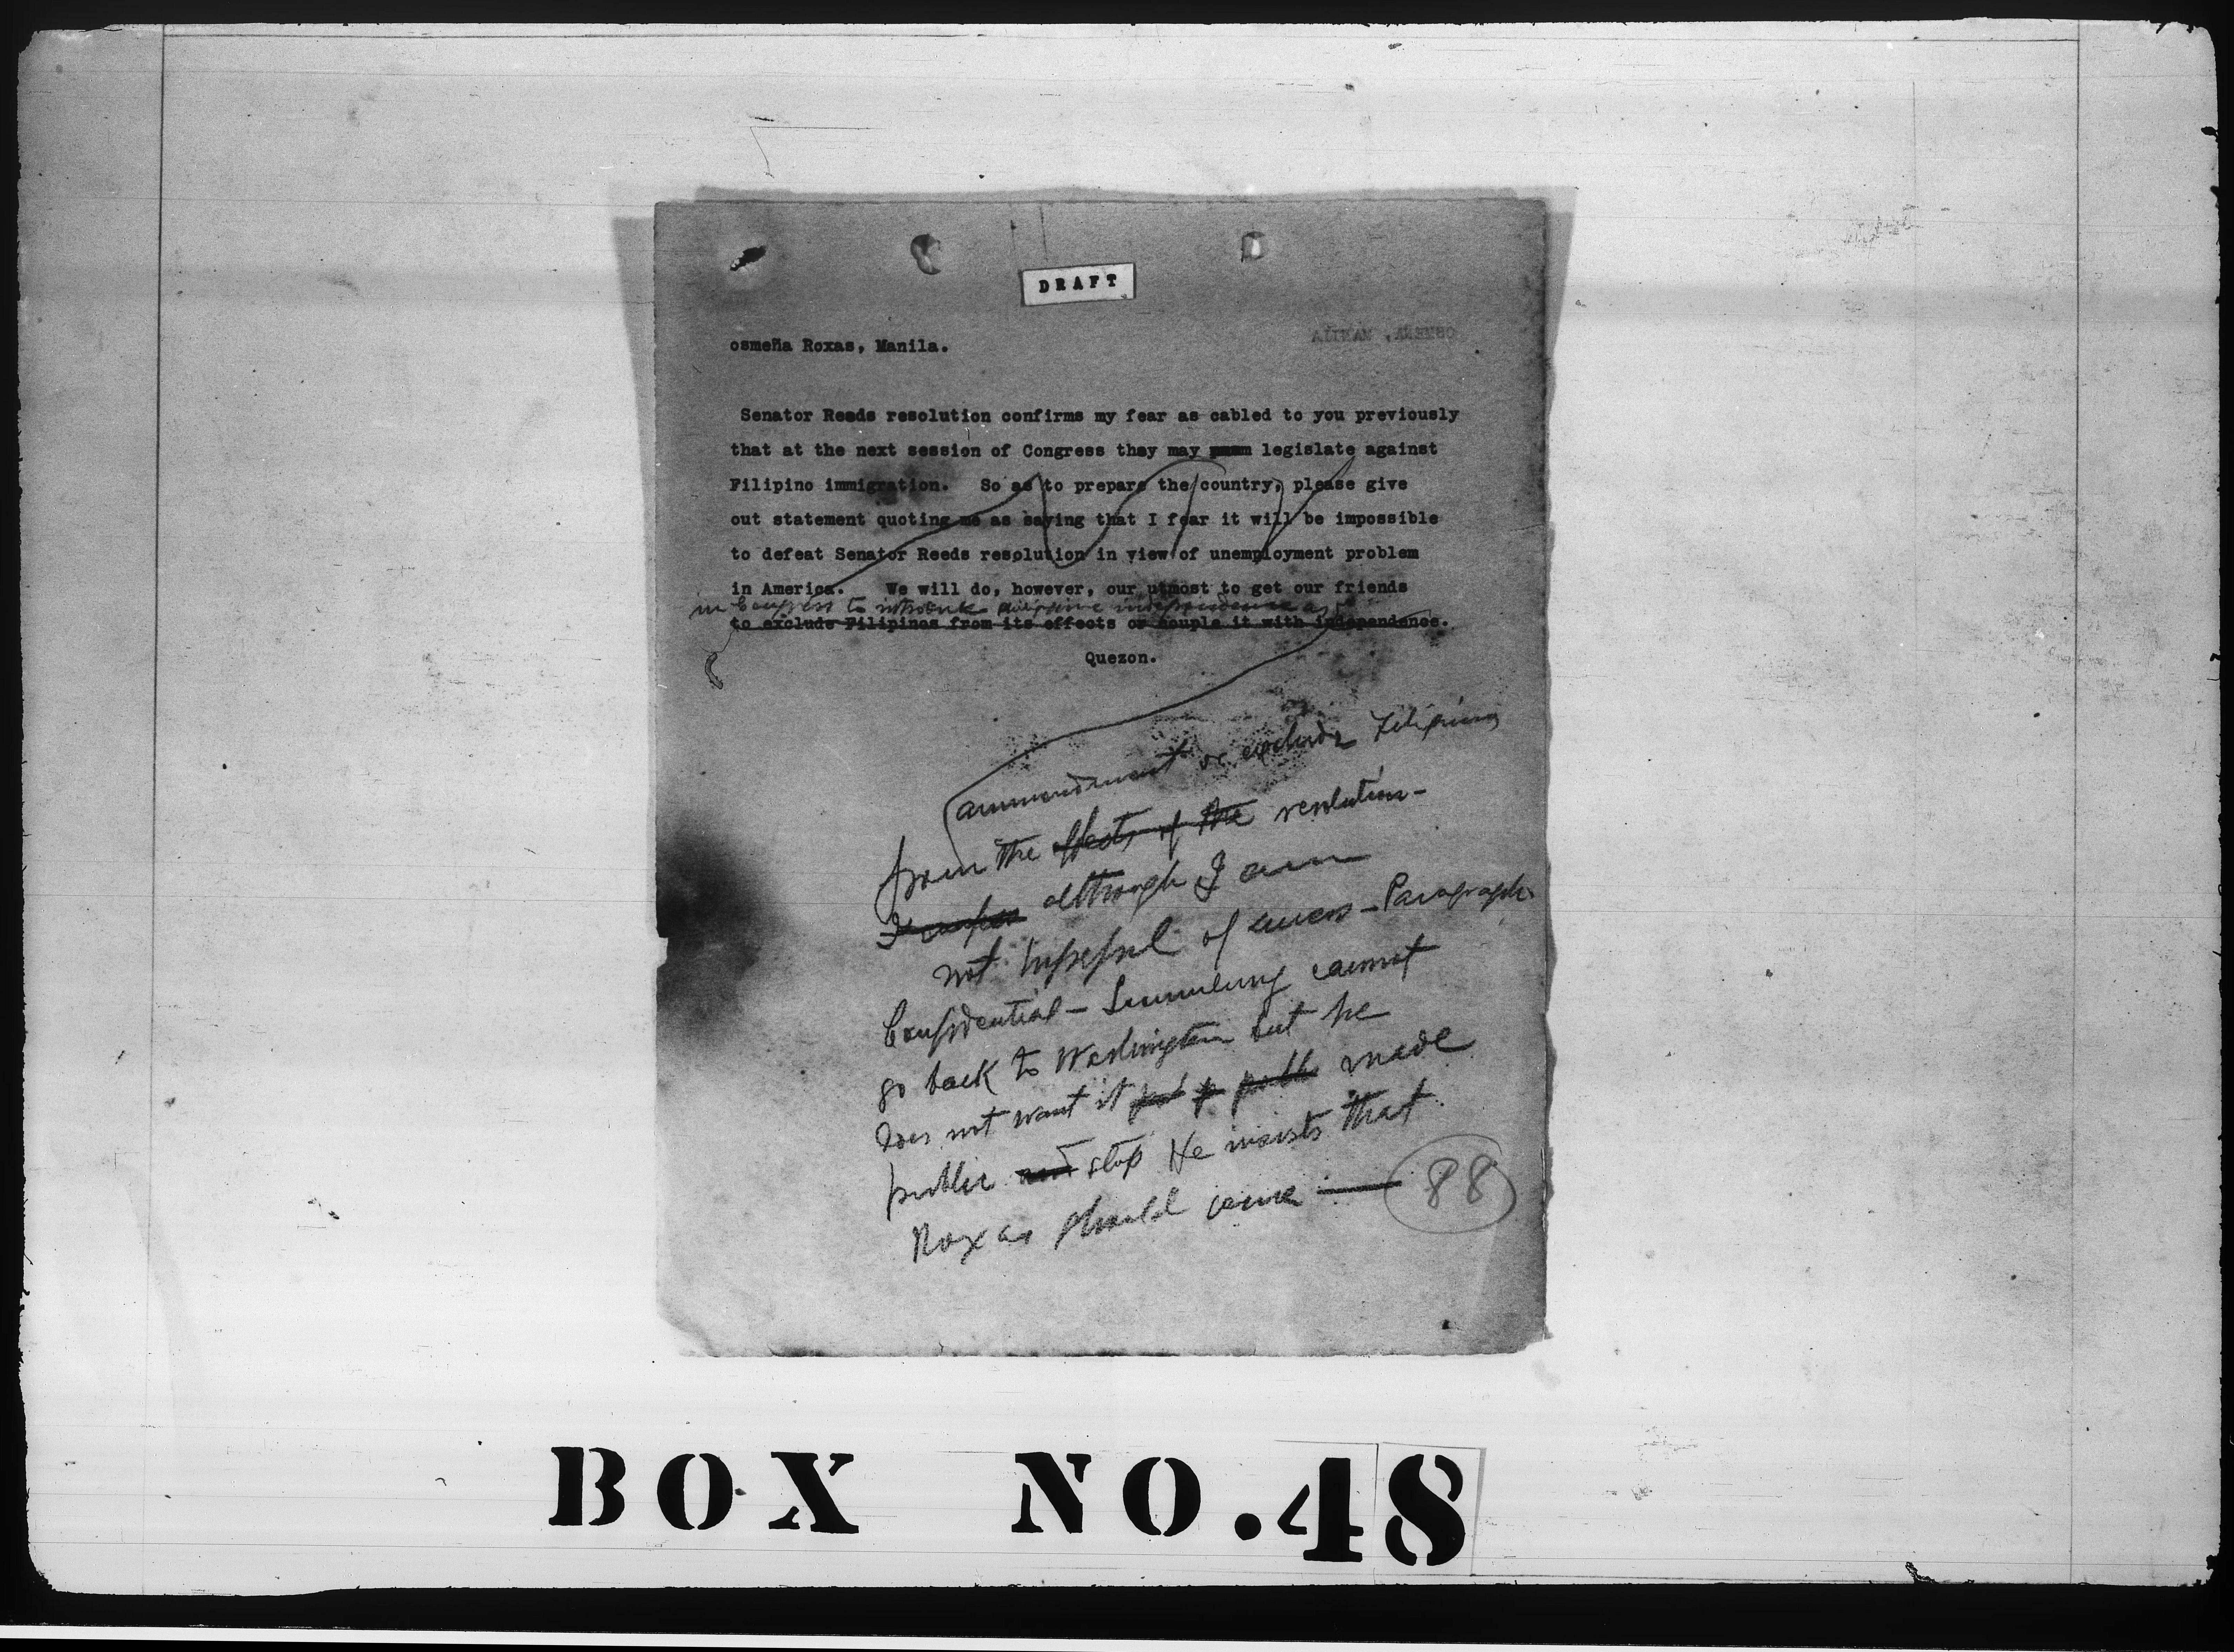 DRAFT
OSMEÑA, MANILA
osmeña Roxas, Manila.
Senator Reeds resolution confirms my fear as cabled to you previously
that at the next session of Congress they may legislate against
Filipino immigration. So as to prepare the country, please give
out statement quoting me as saying that I fear it will be impossible
to defeat Senator Reeds resolution in view of unemployment problem
in America. We will do, however, our utmost to get our friends
in Congress to introduce Philippine independence as
to exclude Filipinos from its effects or couple it with independence.
Quezon.
ammendment or exclude Filipinos
from the effects of the resolution-
although I am
not hopeful of success - Paragraph
Confidential - Sumulong cannot
go back to Washington but he
does not want it made
public and stop He insists that
Roxas should come
88
BOX NO.48